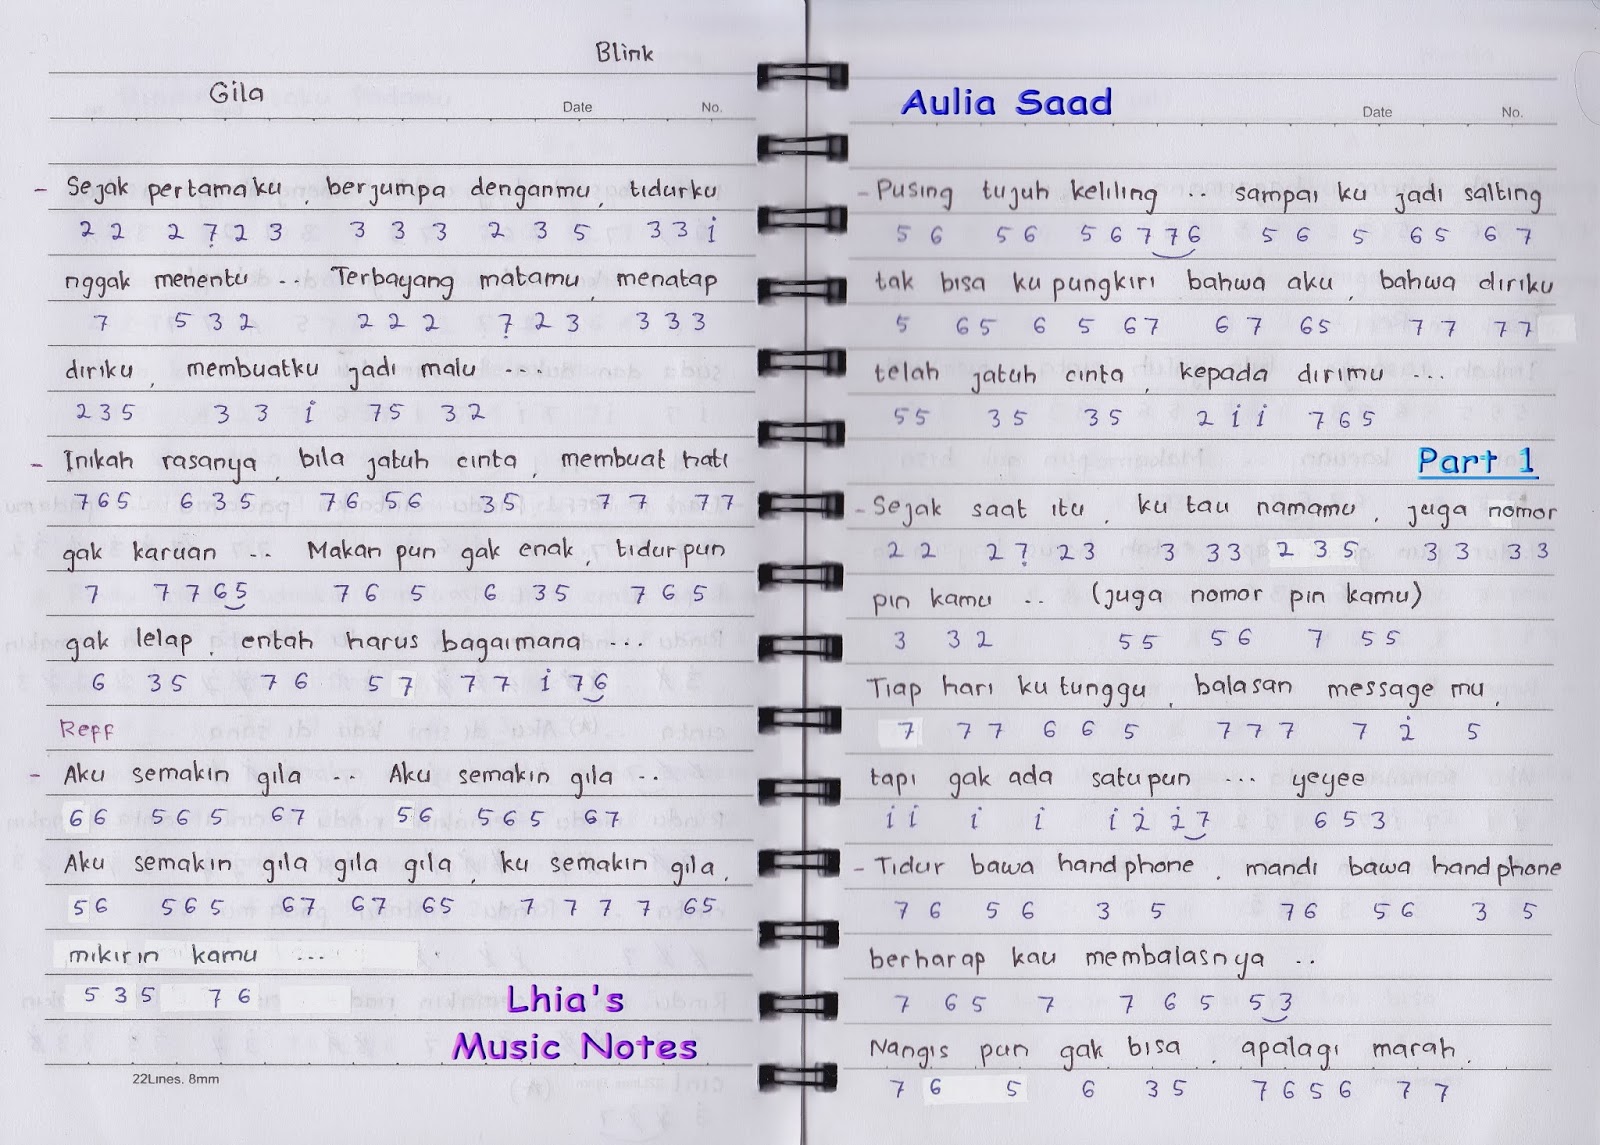 Blink
Gila
Date No.
- Sejak pertamaku, berjumpa denganmu, tidurku
2 2 2 7̣ 2 3 3 3 3 2 3 5 3 3 i
nggak menentu ... Terbayang matamu, menatap
7 5 3 2 2 2 2 7̣ 2 3 3 3 3
diriku, membuatku jadi malu ....
2 3 5 3 3 i 7 5 3 2
- Inikah rasanya, bila jatuh cinta, membuat hati
7 6 5 6 3 5 7 6 5 6 3 5 7 7 7 7
gak karuan .. Makan pun gak enak, tidur pun
7 7 7 6 5 7 6 5 6 3 5 7 6 5
gak lelap, entah harus bagaimana ...
6 3 5 7 6 5 7 7 7 i 7 6
Reff
- Aku semakin gila .. Aku semakin gila ..
6 6 5 6 5 6 7 5 6 5 6 5 6 7
Aku semakin gila gila gila, ku semakin gila,
5 6 5 6 5 6 7 6 7 6 5 7 7 7 7 6 5
mikirin kamu ...
5 3 5 7 6
Lhia's
Music Notes
22Lines. 8mm
Aulia Saad
Date No.
- Pusing tujuh keliling ... sampai ku jadi salting
5 6 5 6 5 6 7 7 6 5 6 5 6 5 6 7
tak bisa ku pungkiri bahwa aku, bahwa diriku
5 6 5 6 5 6 7 6 7 6 5 7 7 7 7
telah jatuh cinta, kepada dirimu ...
5 5 3 5 3 5 2 i i 7 6 5
Part 1
- Sejak saat itu, ku tau namamu, juga nomor
2 2 2 7̣ 2 3 3 3 3 2 3 5 3 3 3 3
pin kamu .. (juga nomor pin kamu)
3 3 2 5 5 5 6 7 5 5
Tiap hari ku tunggu, balasan message mu,
7 7 7 6 6 5 7 7 7 7 2̇ 5
tapi gak ada satupun ... yeyee
i i i i i 2̇ 2̇ 7 6 5 3
- Tidur bawa handphone, mandi bawa handphone
7 6 5 6 3 5 7 6 5 6 3 5
berharap kau membalasnya ..
7 6 5 7 7 6 5 5 3
Nangis pun gak bisa, apalagi marah,
7 6 5 6 3 5 7 6 5 6 7 7